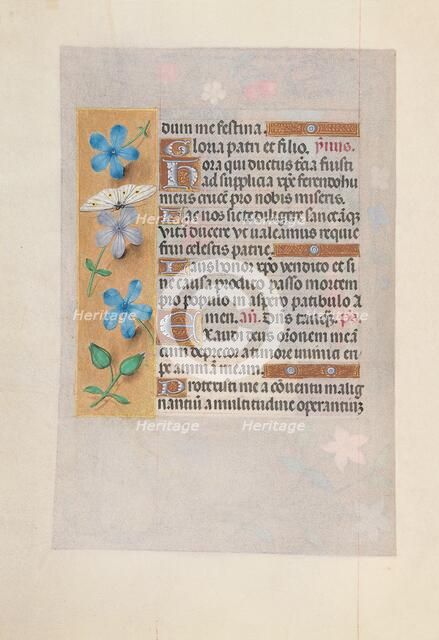 dum me festina.
Gloria patri et filio. pm̄us.
Hora qui ductus t̄cia fuisti
ad supplicia xp̄e ferendo hu
meus crucē pro nobis miseris.
Fac nos sic te diligere sanctāq̄
vitā ducere vt valeamus requie
frui celestis patrie.
Laus honor xp̄o vendito et si
ne causa prodito passo mortem
pro populo in aspero patibulo A
men. an̄. Dn̄s tanq̄.
Exaudi deus or̄onem meā
cum deprecor a timore inimici eri
pe animā meam.
Protexisti me a cōuentu malig
nantiū a multitudine operantiū
Heritage
Heritage
Heritage
Heritage
Heritage
Heritage